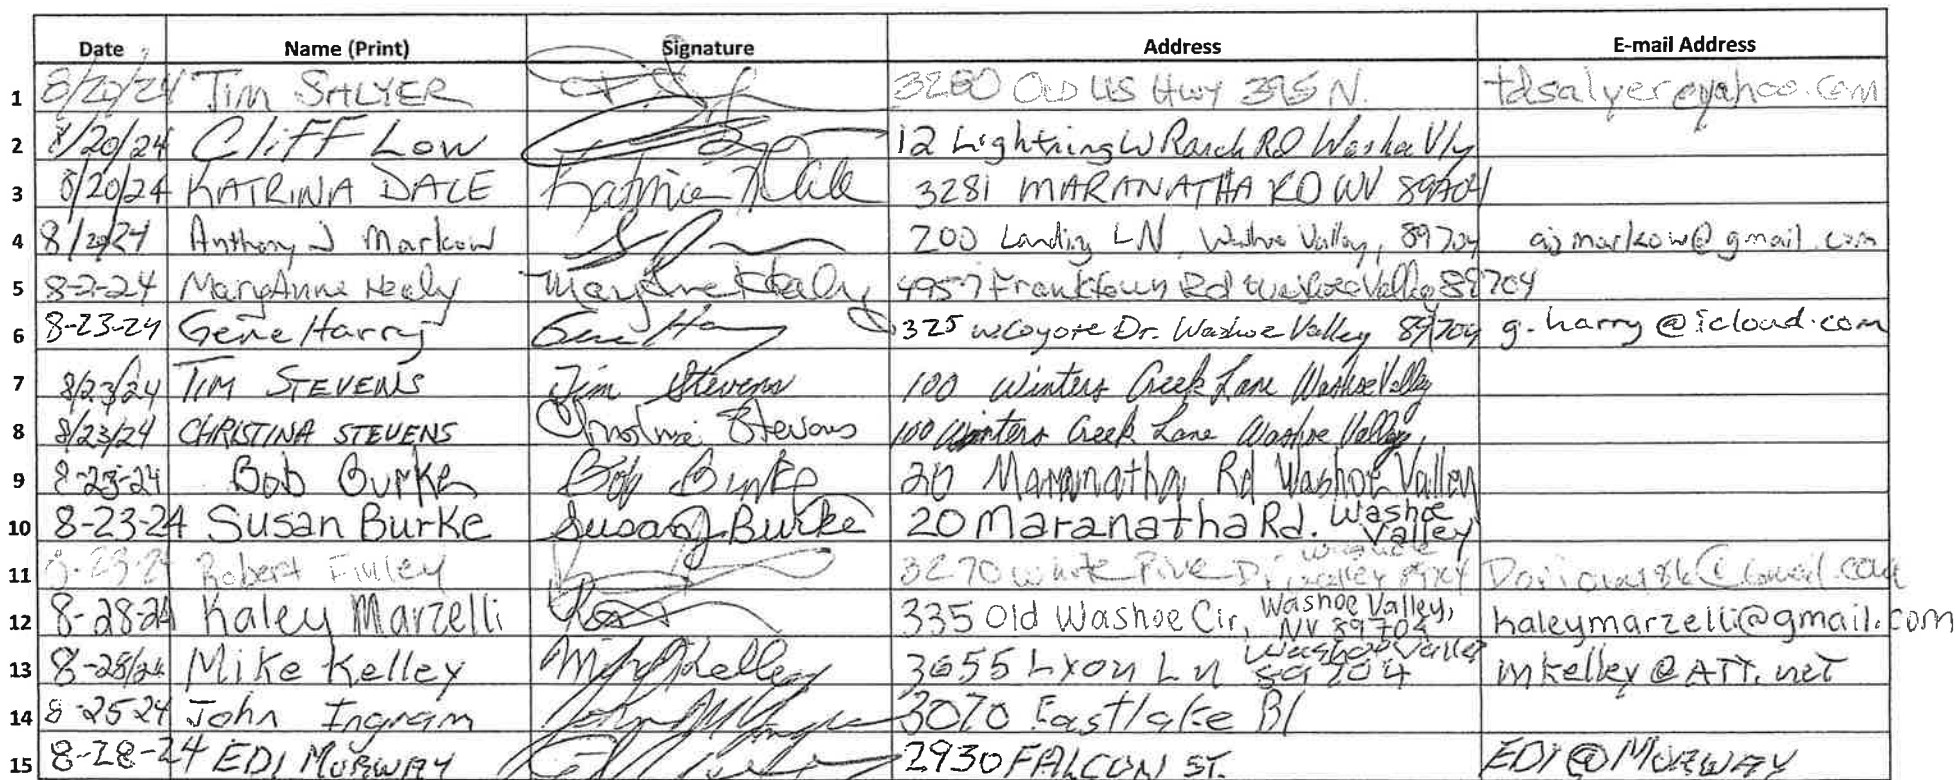 Date Name (Print) Signature Address E-mail Address
1 8/20/24 TIM SALYER 3280 OLD US HWY 395 N. tdsalyer@yahoo.com
2 8/20/24 Cliff Low 12 Lightning W Ranch RD Washoe Vly
3 8/20/24 KATRINA DALE Katrina Dale 3281 MARANATHA RD WV 89704
4 8/20/24 Anthony J Markow 200 Landing LN, Washoe Valley, 89704 ajmarkow@gmail.com
5 8-2-24 MaryAnne Healy MaryAnne Healy 4957 Franktown Rd Washoe Valley 89704
6 8-23-24 Gene Harry Gene Harry 325 W. Coyote Dr. Washoe Valley 89704 g.harry@icloud.com
7 8/23/24 TIM STEVENS Tim Stevens 100 Winters Creek Lane Washoe Valley
8 8/23/24 CHRISTINA STEVENS Christina Stevens 100 Winters Creek Lane Washoe Valley,
9 8-23-24 Bob Burke Bob Burke 20 Maranatha Rd Washoe Valley
10 8-23-24 Susan Burke Susan J Burke 20 Maranatha Rd. Washoe Valley
11 Robert Finley 3270 White Pine Dr Washoe Valley
12 8-28-24 Kaley Marzelli 335 Old Washoe Cir, Washoe Valley, NV 89704 haleymarzelli@gmail.com
13 8-28/24 Mike Kelley Mike Kelley 3655 Lyon Ln Washoe Valley 89704 mkelley@ATT.net
14 8-25 24 John Ingram 3070 Eastlake Bl
15 8-28-24 EDI MORWAY 2930 FALCON ST. EDI@MORWAY